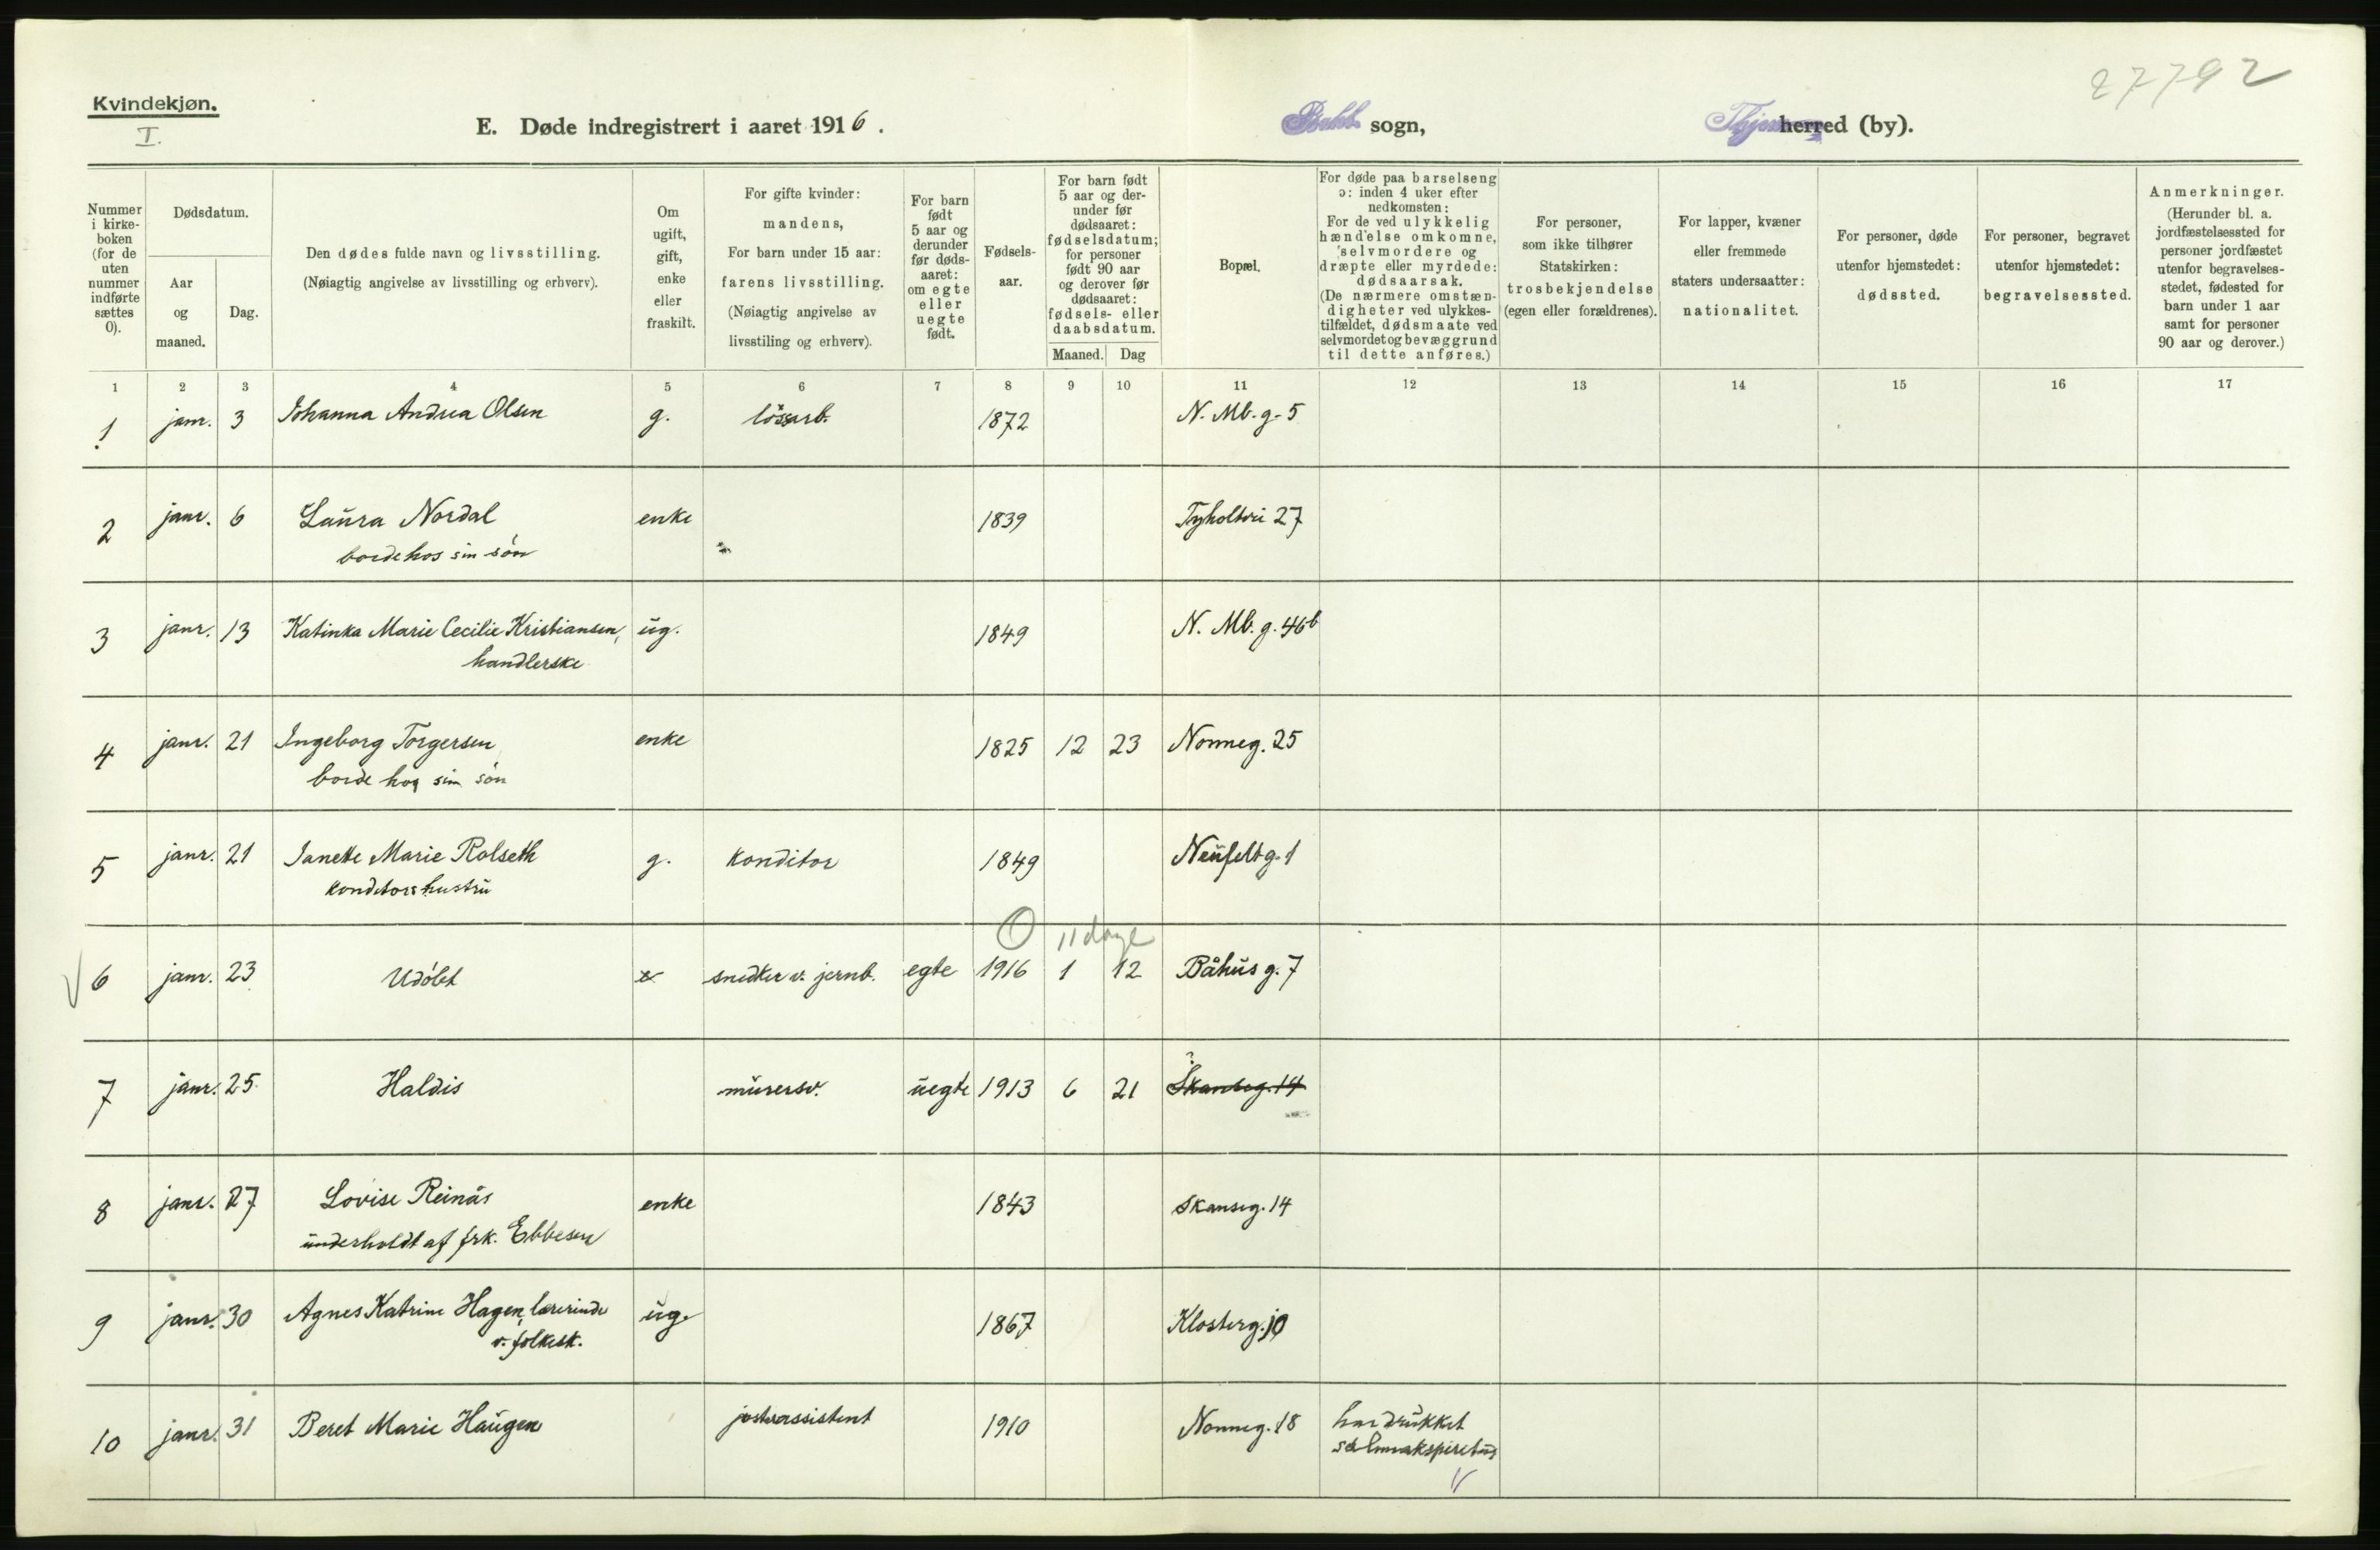 27792
Kvindekjøn.
I.
E. Døde indregistrert i aaret 1916.
sogn,
herred (by).
Nummer i kirkeboken (for de uten nummer indførte sættes 0).
Dødsdatum.
Aar og maaned.
Dag.
Den dødes fulde navn og livsstilling.
(Nøiagtig angivelse av livsstilling og erhverv).
Om ugift, gift, enke eller fraskilt.
For gifte kvinder:
mandens,
For barn under 15 aar:
farens livsstilling.
(Nøiagtig angivelse av
livsstiling og erhverv).
For barn født 5 aar og derunder før dødsaaret: om egte eller uegte født.
Fødselsaar.
For barn født
5 aar og der-
under før
dødsaaret:
fødselsdatum;
for personer
født 90 aar
og derover før
dødsaaret:
fødsels- eller
daabsdatum.
Maaned. Dag
Bopæl.
For døde paa barselseng
ɔ: inden 4 uker efter
nedkomsten:
For de ved ulykkelig
hændelse omkomne,
selvmordere og
dræpte eller myrdede:
dødsaarsak.
(De nærmere omstæn-
digheter ved ulykkes-
tilfældet, dødsmaate ved
selvmordet og bevæggrund
til dette anføres.)
For personer,
som ikke tilhører
Statskirken:
trosbekjendelse
(egen eller forældrenes).
For lapper, kvæner
eller fremmede
staters undersaatter:
nationalitet.
For personer, døde
utenfor hjemstedet:
dødssted.
For personer, begravet
utenfor hjemstedet:
begravelsessted.
Anmerkninger.
(Herunder bl. a.
jordfæstelsessted for
personer jordfæstet
utenfor begravelses-
stedet, fødested for
barn under 1 aar
samt for personer
90 aar og derover.)
1 2 3 4 5 6 7 8 9 10 11 12 13 14 15 16 17
1 janr. 3 Johanna Andrea Olsen g. løssarb. 1872 N. Mb. g. 5
2 janr. 6 Laura Nordal enke 1839 Tyholtvei 27
borde hos sin søn
3 janr. 13 Katinka Marie Cecilie Kristiansen, ug. 1849 N. Mb. g. 46b
handlerske
4 janr. 21 Ingeborg Torgersen enke 1825 12 23 Nonneg. 25
borde hos sin søn
5 janr. 21 Janette Marie Rolseth g. konditor 1849 Neufeltg. 1
konditors hustru
O 11 dage
6 janr. 23 Udøbt snedker v. jernb. egte 1916 1 12 Båhus g. 7
7 janr. 25 Haldis murersv. uegte 1913 6 21 Skanseg. 14
8 janr. 27 Lovise Reinås enke 1843 Skanseg. 14
underholdt af frk. Ebbesen
9 janr. 30 Agnes Katrine Hagen, lærerinde ug. 1867 Klosterg. 10
v. folkesk.
10 janr. 31 Beret Marie Haugen 1910 Nonneg. 18 har drukket
salmiakspiritus